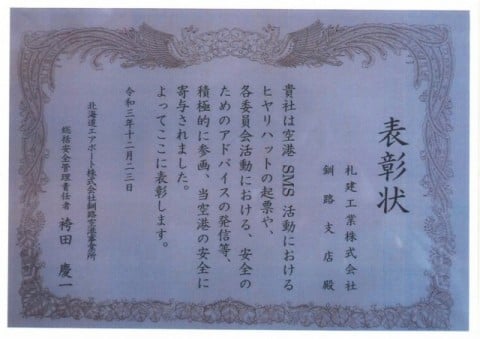 表彰状
札建工業株式会社
釧路支店殿
貴社は空港SMS活動における
ヒヤリハットの起票や、
各委員会活動における、安全の
ためのアドバイスの発信等、
積極的に参画、当空港の安全に
寄与されました。
よってここに表彰します。
令和三年十二月二三日
北海道エアポート株式会社釧路空港事業所
総括安全管理責任者 袴田 慶一